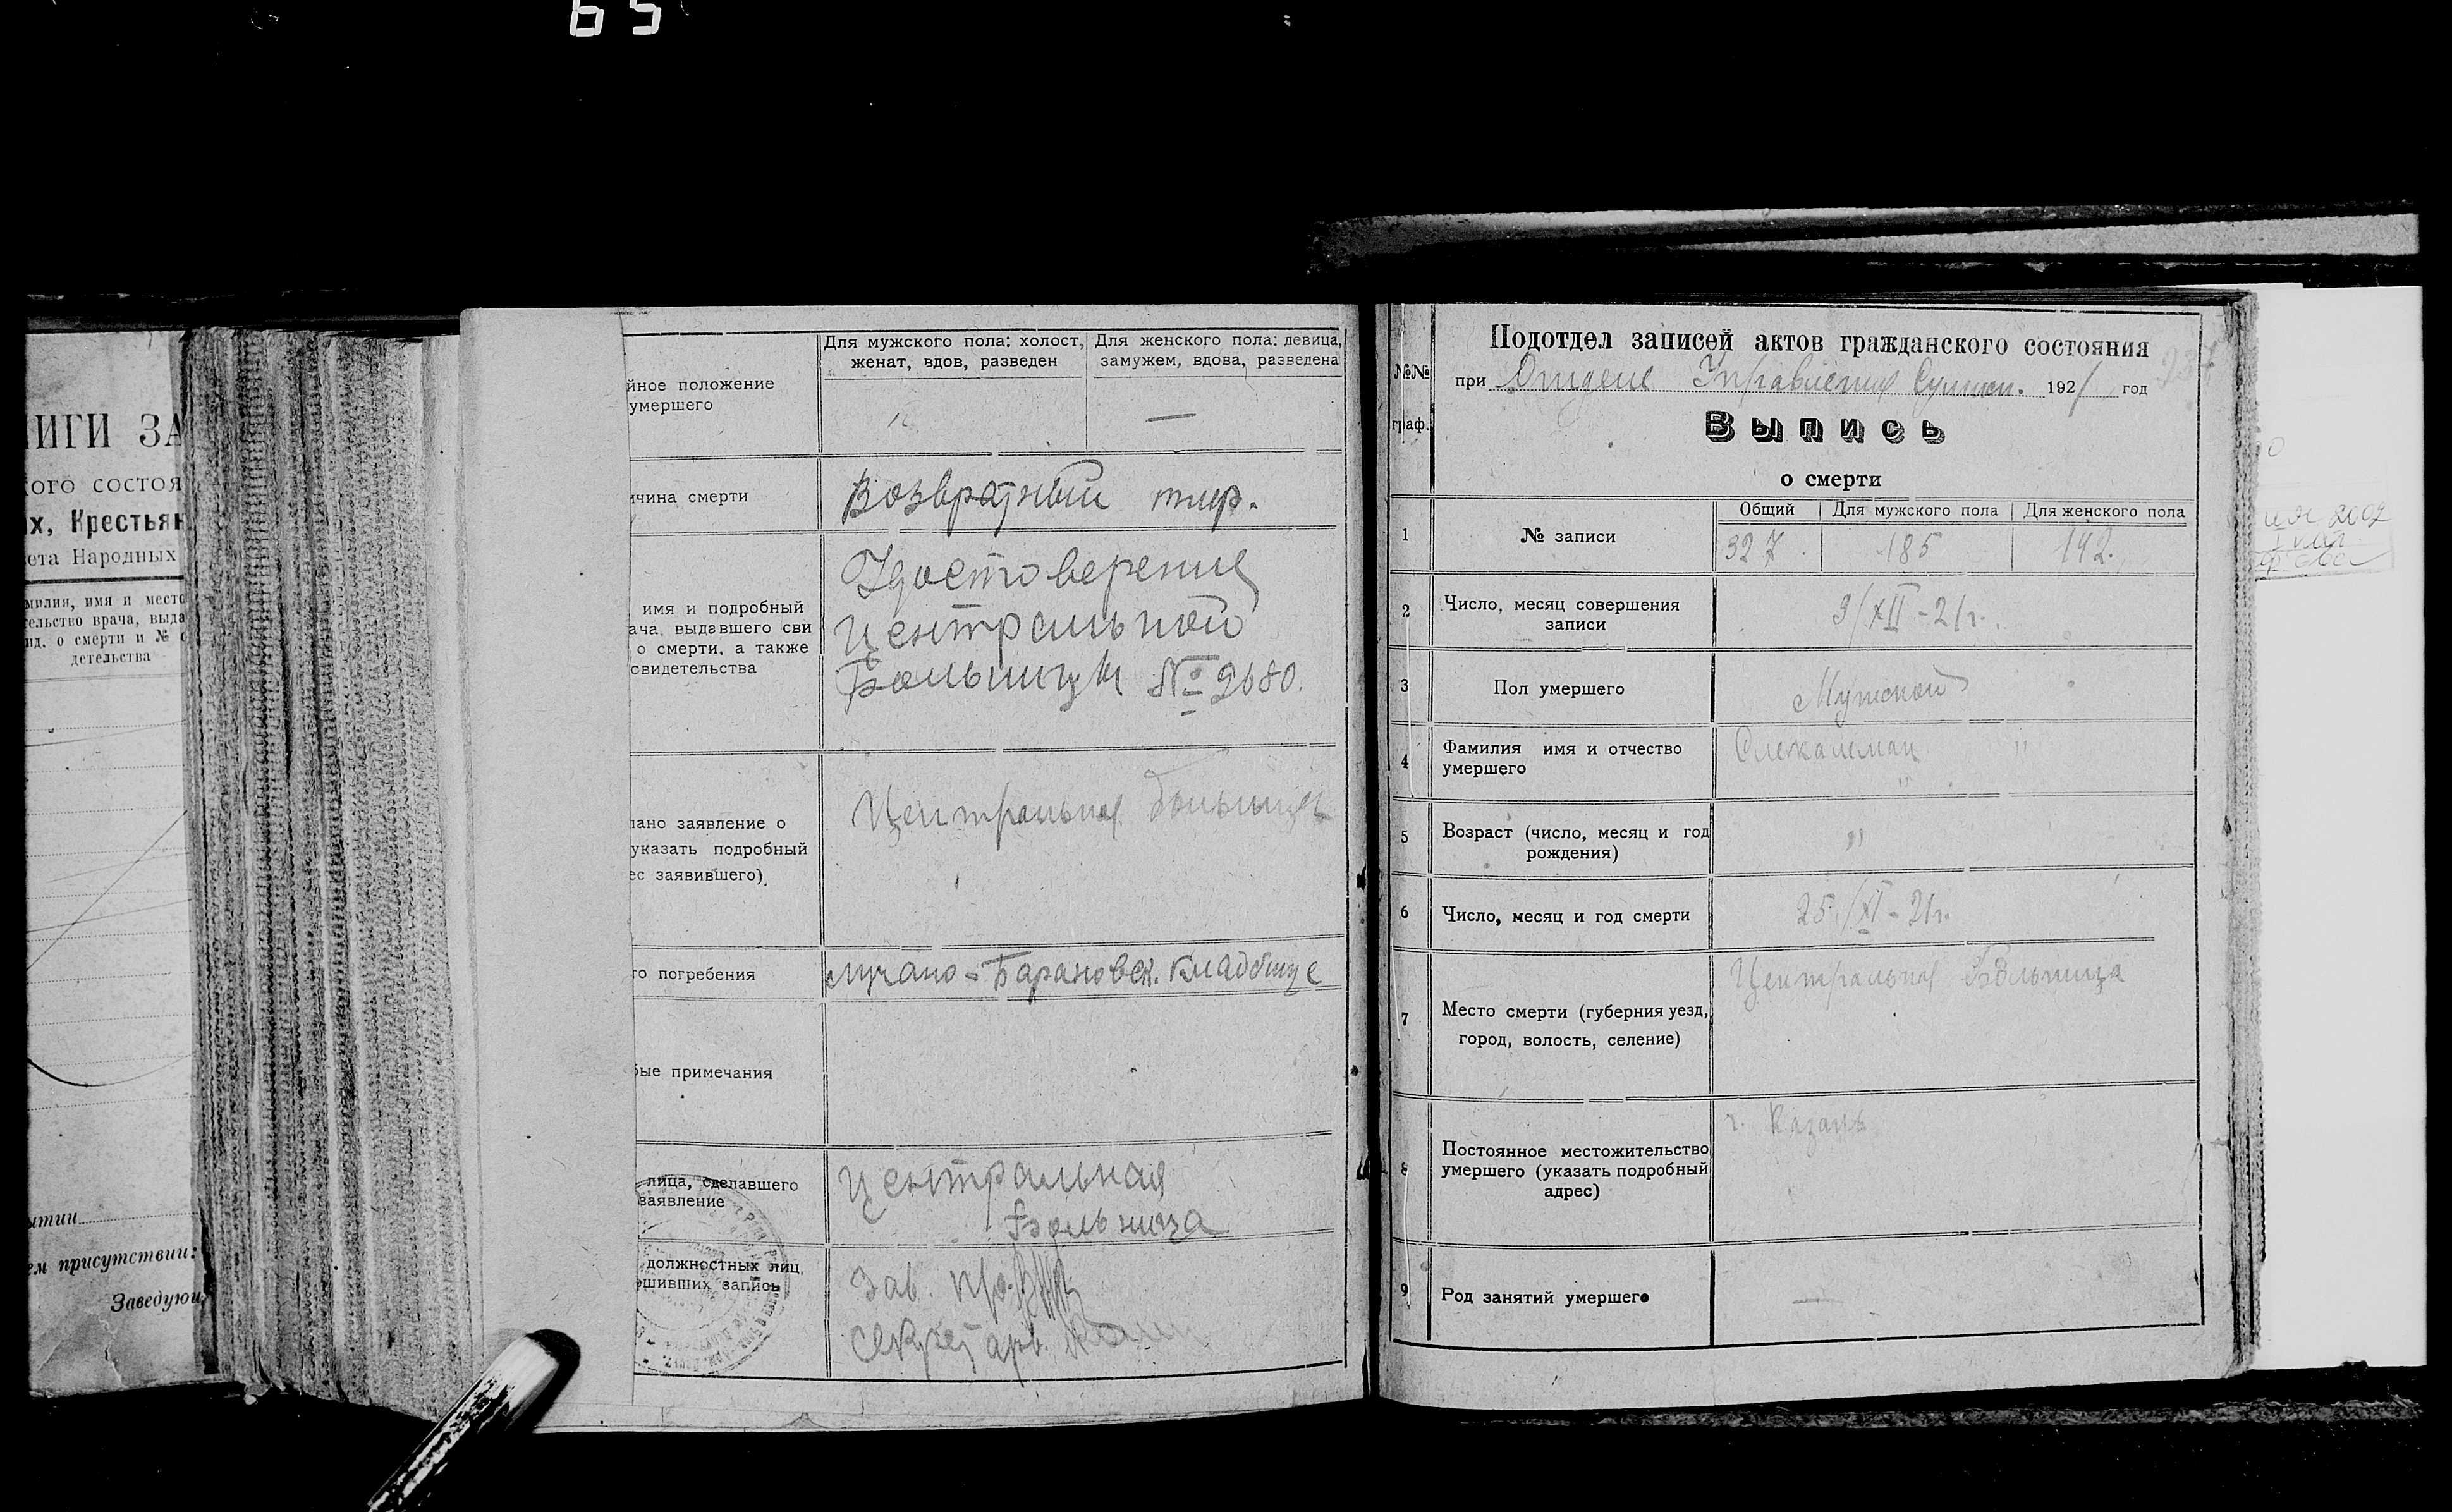 65
ИГИ ЗА
ого состоя
х, Крестьян
ета Народных
милия, имя и место
тельство врача, выда
ид. о смерти и №
детельства
ытии
ем присутствии:
Заведующ
йное положение
умершего
Для мужского пола: холост,
женат, вдов, разведен
Для женского пола: девица,
замужем, вдова, разведена
—
ичина смерти
Возвратный тиф.
имя и подробный
ача, выдавшего сви
о смерти, а также
свидетельства
Удостоверение
Центральной
Больницы № 2680.
лано заявление о
указать подробный
ес заявившего)
Центральная больница
то погребения
Лучано-Барановск. кладбище
бые примечания
лица, сделавшего
заявление
Центральная
Больница
должностных лиц,
ршивших запись
Зав. п/о.
Секретарь
№№
граф.
Подотдел записей актов гражданского состояния
при Отделе Управления 1921 год
Выпись
о смерти
1
№ записи
Общий
Для мужского пола
Для женского пола
327.
185
142.
2
Число, месяц совершения
записи
9/XII-21г.
3
Пол умершего
Мужской
4
Фамилия имя и отчество
умершего
"
"
5
Возраст (число, месяц и год
рождения)
"
6
Число, месяц и год смерти
25/XI-21г.
7
Место смерти (губерния уезд,
город, волость, селение)
Центральная Больница
8
Постоянное местожительство
умершего (указать подробный
адрес)
г. Казань
9
Род занятий умершего
—